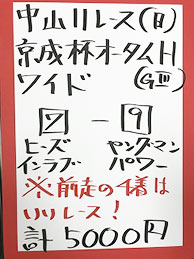 中山11レース(日)
京成杯オータムH
ワイド (GⅢ)
7 - 9
ヒーズ ヤングマン
インラブ パワー
※前走の1着は
リリレース!
計5000円